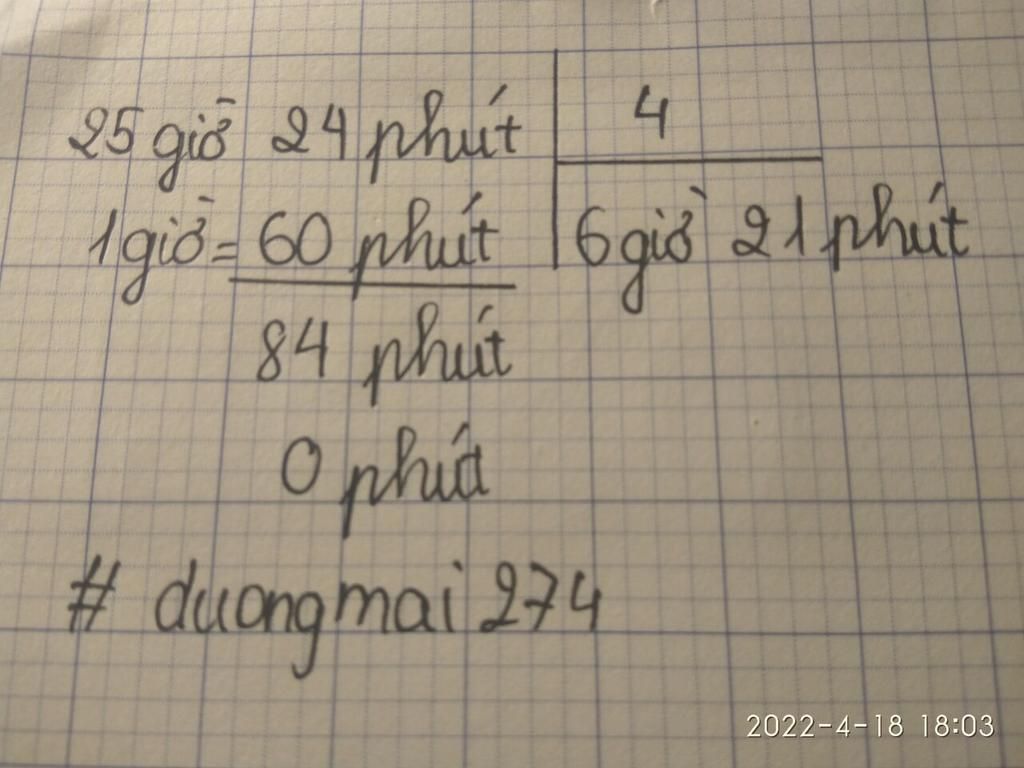 25 giờ 24 phút | 4
1 giờ = 60 phút | 6 giờ 21 phút
84 phút
0 phút
# duongmai 274
2022-4-18 18:03